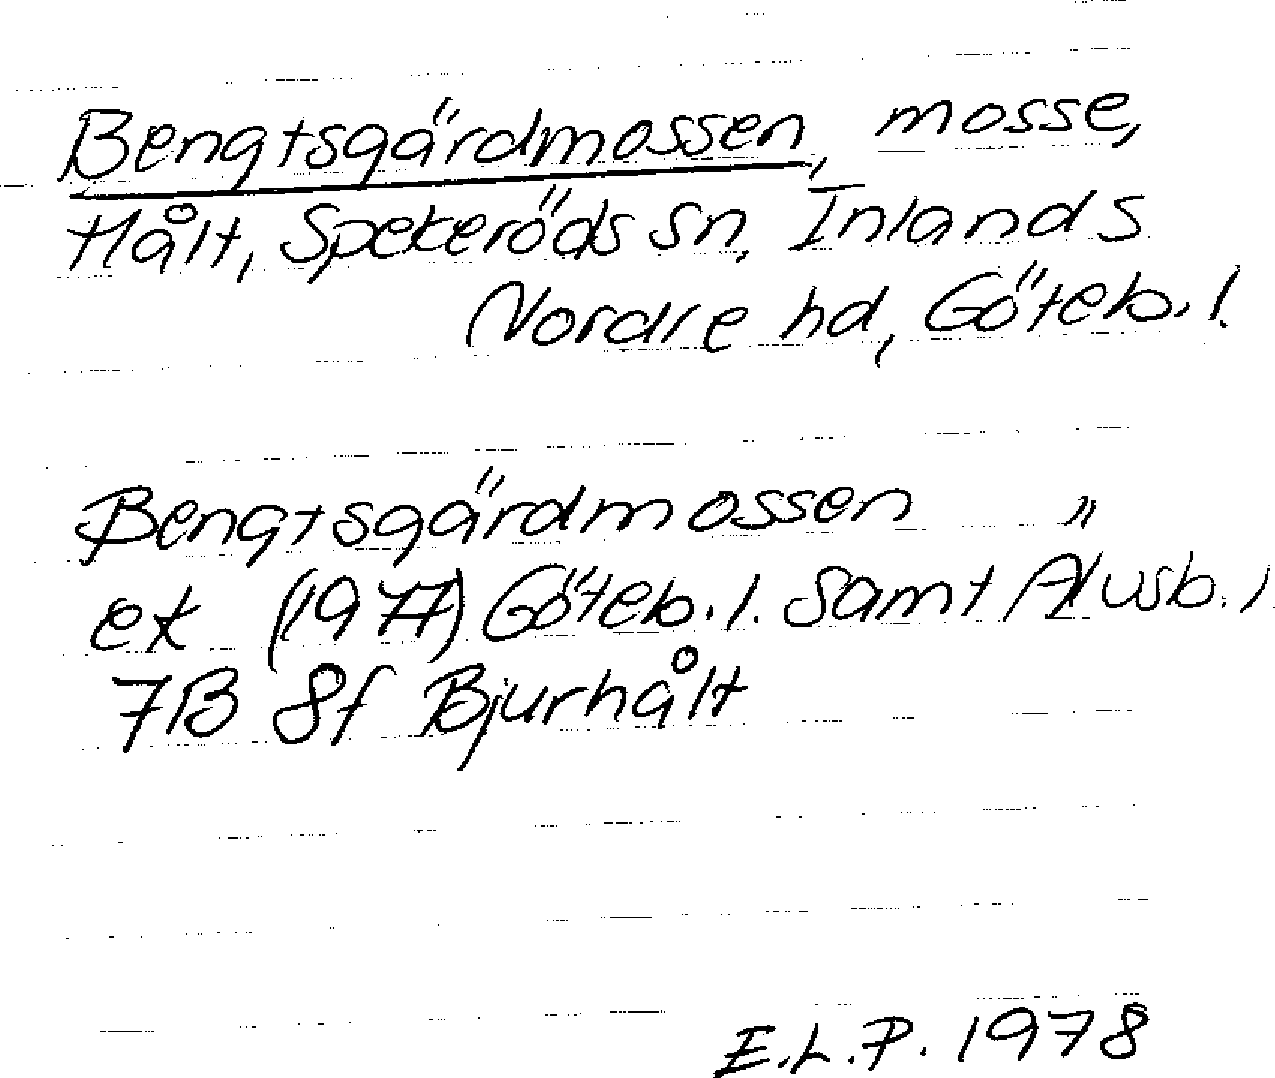 Bengtsgärdmossen, mosse,
Hålt, Spekeröds sn, Inlands
Nordre hd, Göteb. l.
Bengtsgärdmossen "
ek (1977) Göteb. l. samt Älvsb. l
7B 8f Bjurhålt
E.L.P. 1978